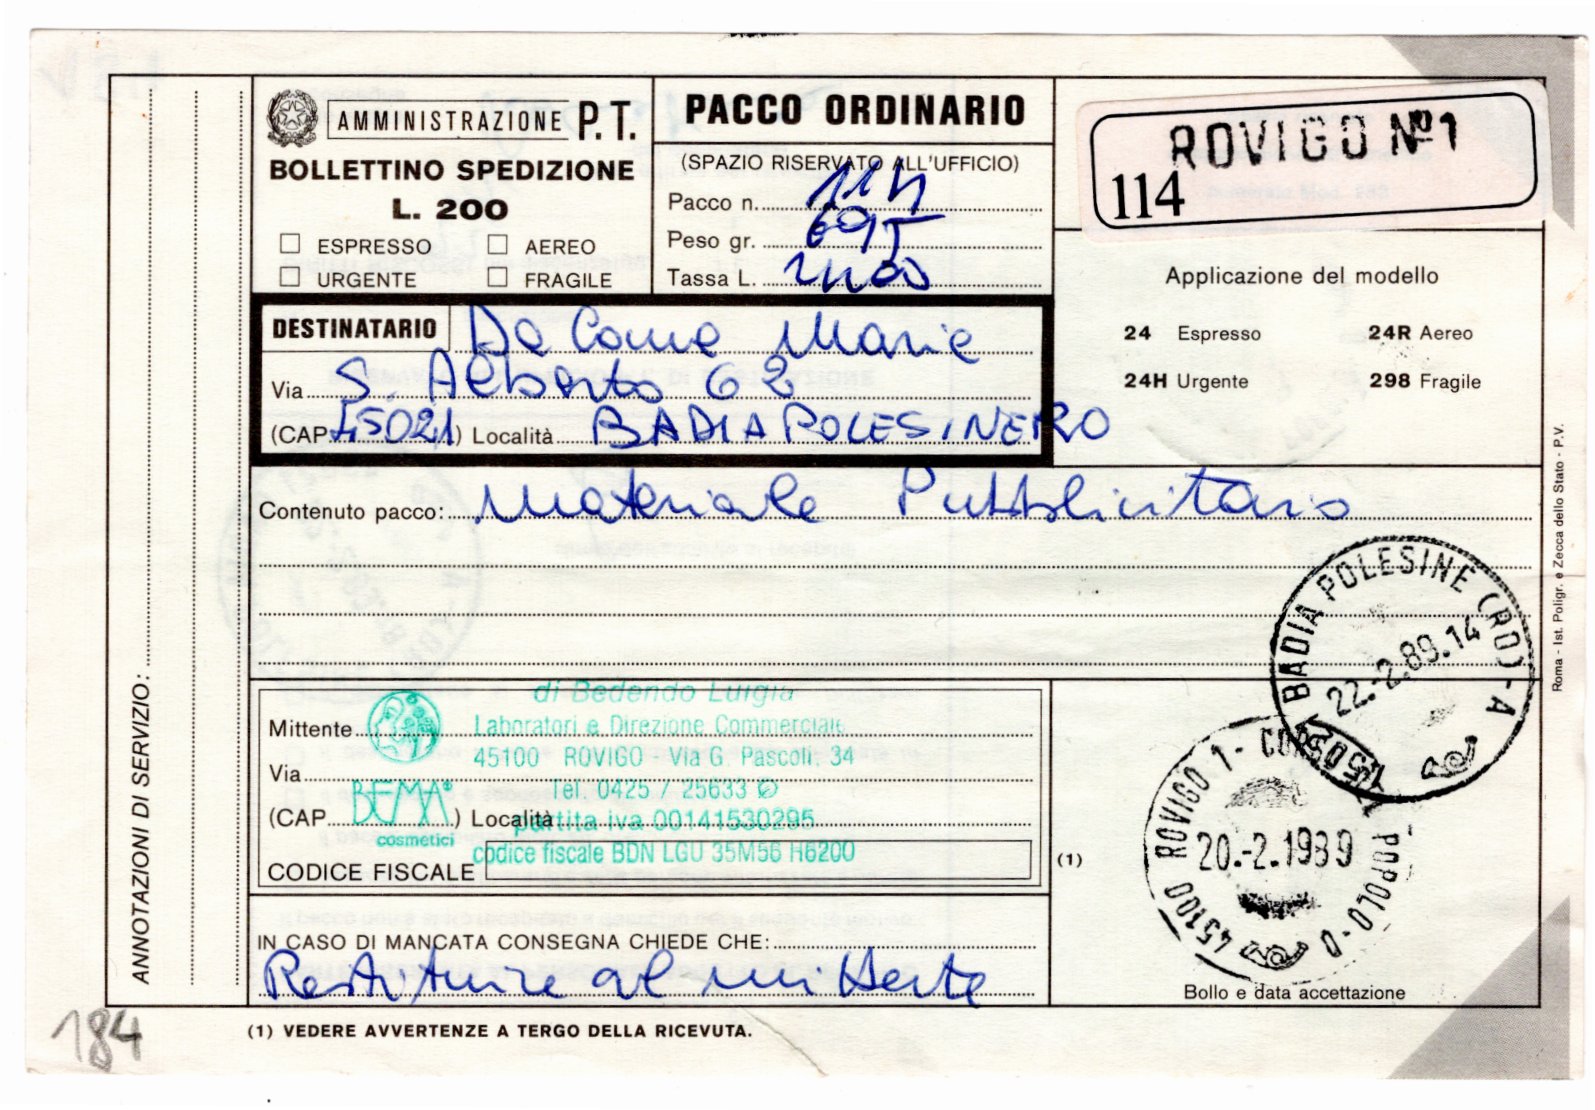 AMMINISTRAZIONE P.T.
BOLLETTINO SPEDIZIONE
L. 200
ESPRESSO AEREO
URGENTE FRAGILE
PACCO ORDINARIO
(SPAZIO RISERVATO ALL'UFFICIO)
Pacco n. 114
Peso gr.
Tassa L.
ROVIGO Nº1
114
Applicazione del modello
24 Espresso 24R Aereo
24H Urgente 298 Fragile
DESTINATARIO De Come Marie
Via S. Alberto 62
(CAP 45021) Località BADIA POLESINE RO
Contenuto pacco: Materiale Pubblicitario
ANNOTAZIONI DI SERVIZIO:
Mittente
Via
(CAP ) Località
CODICE FISCALE
di Bedendo Luigia
Laboratori e Direzione Commerciale
45100 ROVIGO - Via G. Pascoli, 34
Tel. 0425 / 25633
partita iva 00141530295
codice fiscale BDN LGU 35M56 H620O
BEMA®
cosmetici
(1)
BADIA POLESINE (RO) - A
22.-2.89.14
45021
45100 ROVIGO 1 - CORSO DEL POPOLO - D
20.-2.1989
Bollo e data accettazione
IN CASO DI MANCATA CONSEGNA CHIEDE CHE:
Restituire al mittente
(1) VEDERE AVVERTENZE A TERGO DELLA RICEVUTA.
Roma - Ist. Poligr. e Zecca dello Stato - P.V.
184